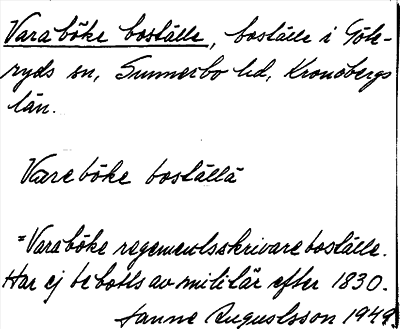 Varaböke boställe, boställe i Göte-
ryds sn, Sunnerbo hd, Kronobergs
län.
Vareböke boställä
"Varaböke regementsskrivareboställe.
Har ej bebotts av militär efter 1830.
Janne Augustsson 1949